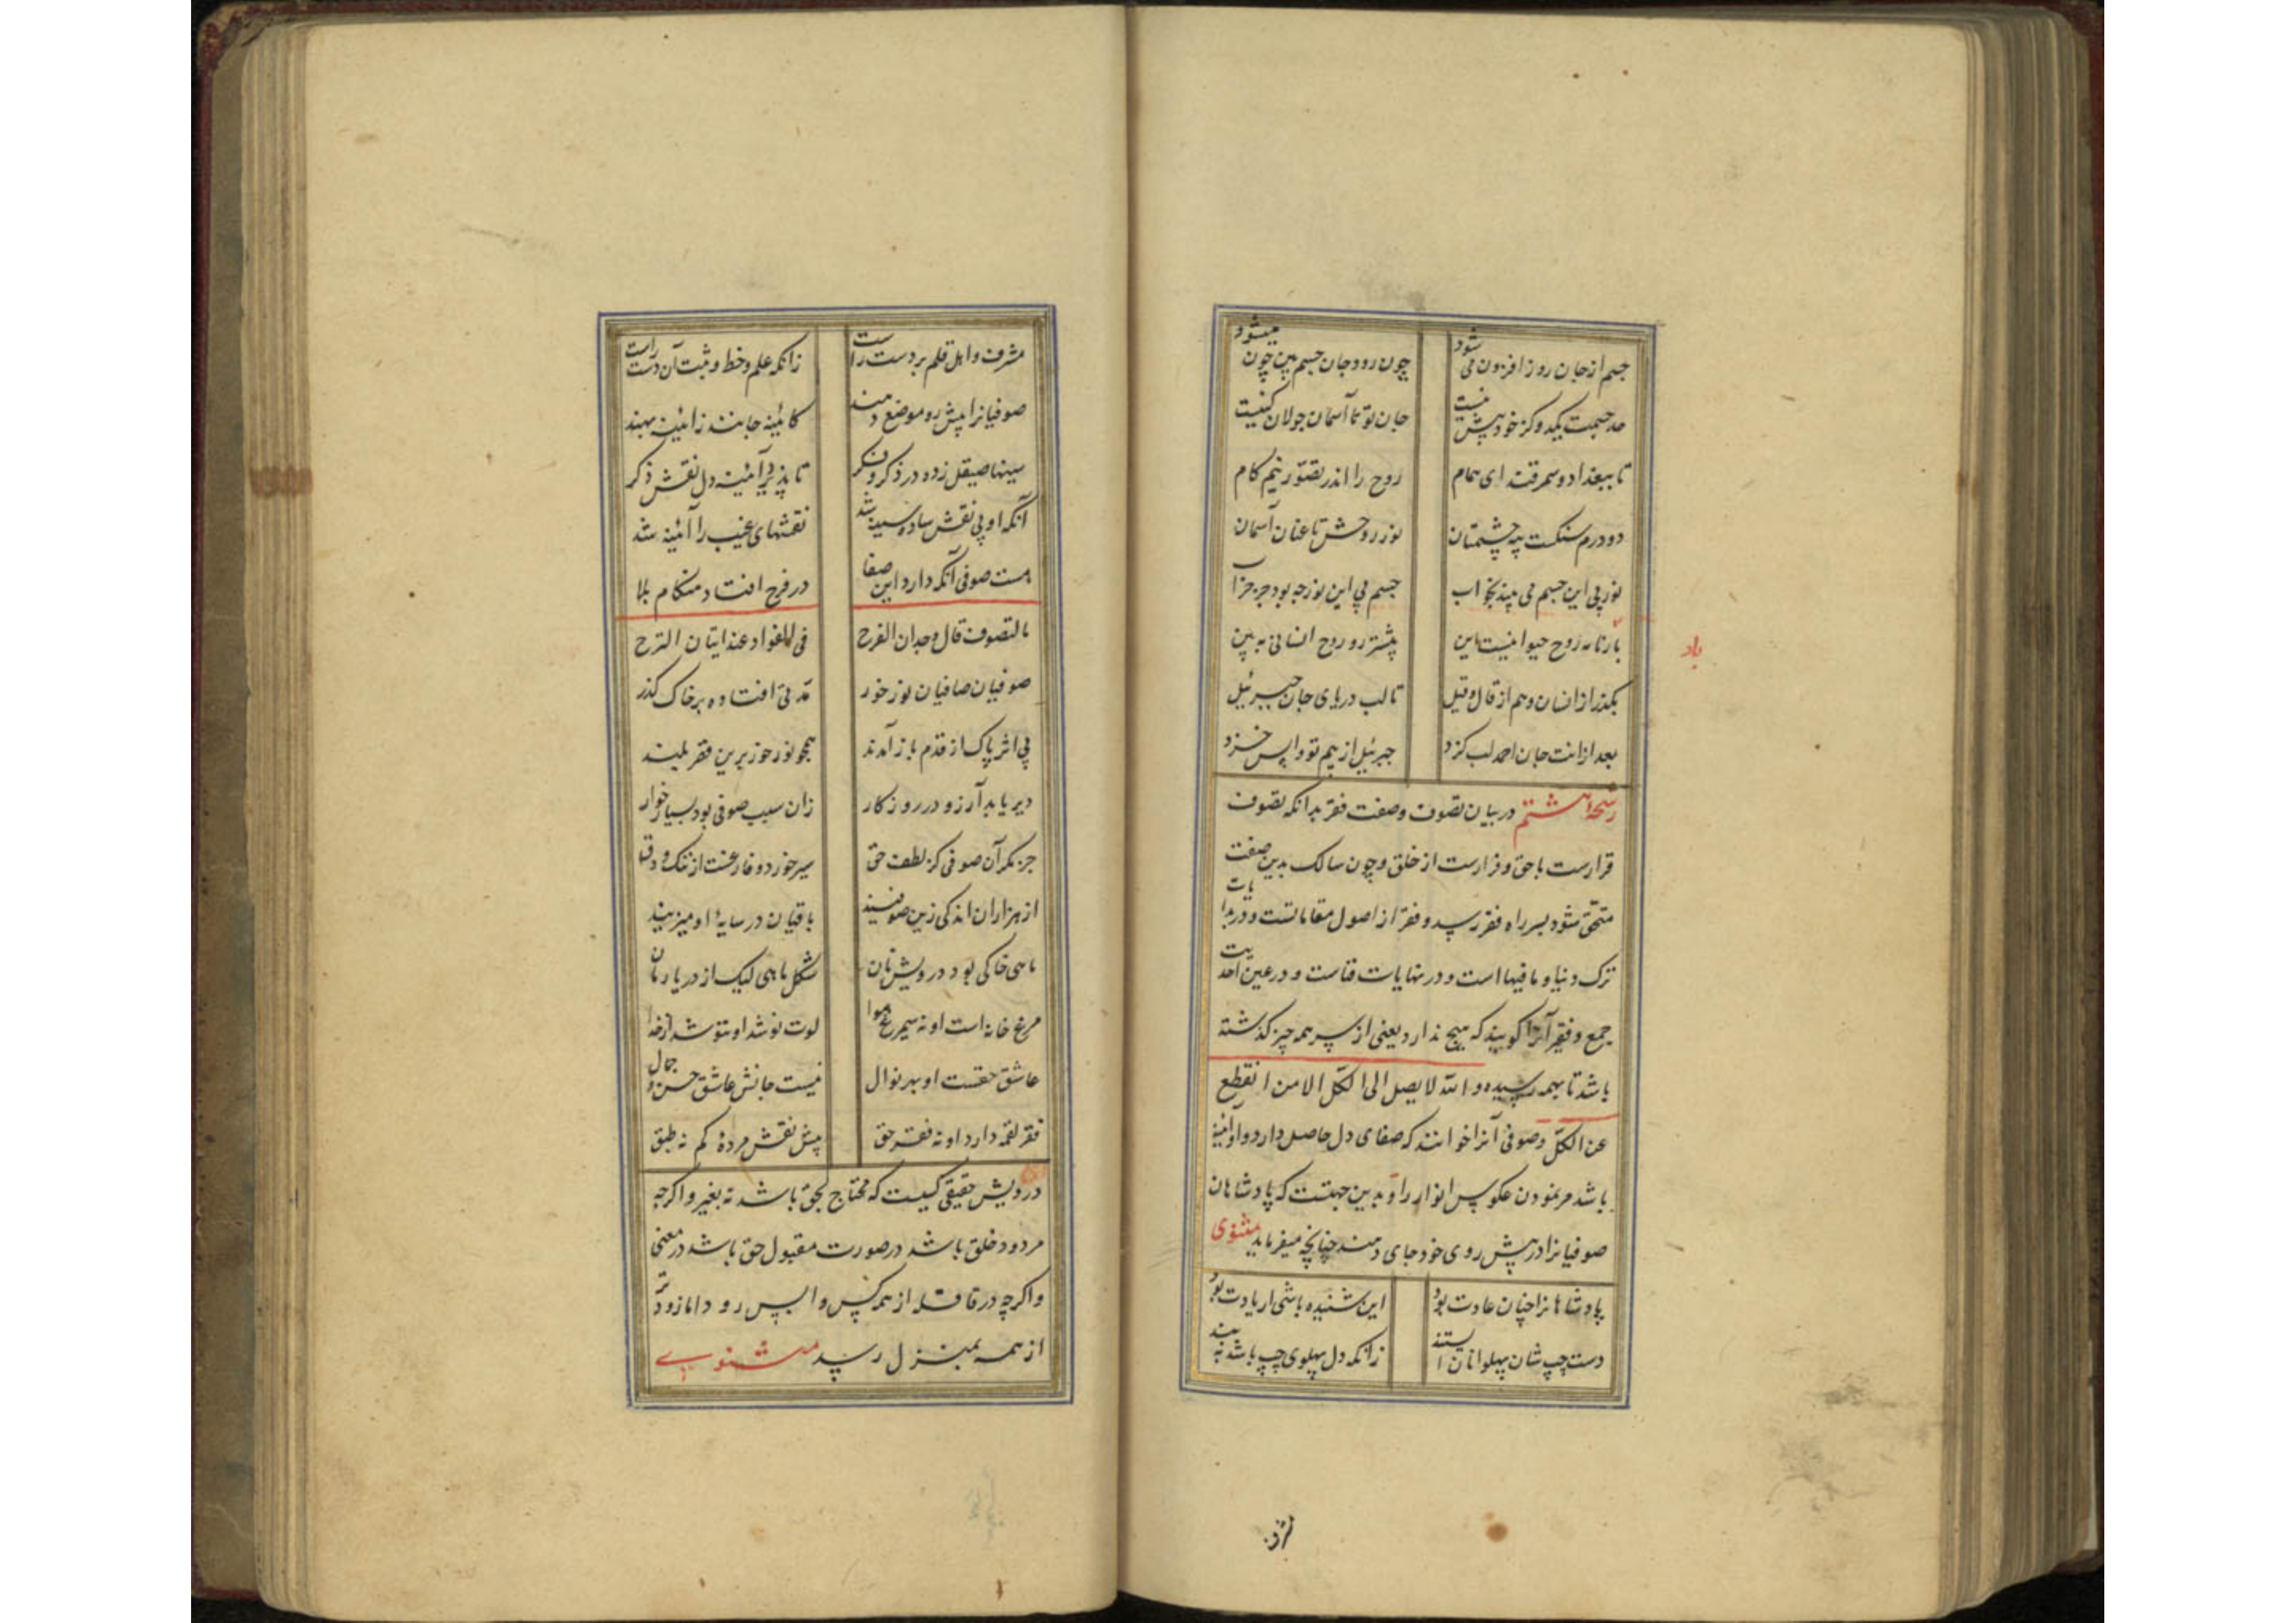 جسم از جان روز افزون می شود چون رود جان جسم بین چون میشود
حد جسمت یکدو گز خود بیش نیست جان تو تا آسمان جولان کنیست
تا ببغداد و سمرقند ای همام روح را اندر تصوّر نیم کام
دو درم سنکست پیه چشمتان نور روحش تا عنان آسمان
نور بی این جسم می بیند بخواب جسم بی این نور چه بود جز خراب
بارنامه روح حیوانیست این پیشتر رو روح انسانی به بین
باد
بکذر از انسان و هم از قال و قیل تا لب دریای جان جبرئیل
بعد ازانت جان احمد لب کزد جبرئیل از بیم تو واپس خزد
رشحهٔ هشتم در بیان تصوف و صفت فقر بدانکه تصوف
قرارست با حق و فرارست از خلق و چون سالک بدین صفت
متحقق شود بسر راه فقر رسد و فقر از اصول مقاماتست و در بدایات
ترک دنیا و ما فیها است و در نهایات فناست و در عین احدیت
جمع و فقیر آنرا کویند که هیچ ندارد یعنی از سر همه چیز کذشته
باشد تا بهمه رسیده و الله لا یصل الی الکل الا من انقطع
عن الکلّ و صوفی آنرا خوانند که صفای دل حاصل دارد و او آینه
باشد مر نمودن عکوس انوار را و بدین جهتست که پادشاهان
صوفیانرا در پیش روی خود جای دهند چنانچه میفرماید مثنوی
پادشاهانرا چنان عادت بود این شنیده باشی ار یادت بود
دست چپ شان پهلوانان ایستند زانکه دل پهلوی چپ باشد ببند
مشرف و اهل قلم بر دست راست زانکه علم و خط و ثبت آن دست راست
صوفیانرا پیش رو موضع دهند کائینه جانند ز ائینه بهند
سینها صیقل زده در ذکر و فکر تا پذیرد آئینه دل نقش ذکر
آنکه او بی نقش ساده سینه شد نقشهای غیب را آئینه شد
هست صوفی آنکه دارد این صفا در فرح افتاد هنکام بلا
ما التصوف قال وجدان الفرح فی الفؤاد عند اتیان الترح
صوفیان صافیان نور خور مدتی افتاده بر خاک کذر
بی اثر پاک از قذر باز آمدند همچو نور خور برین قفر بلند
دیر یابد آرزو در روزکار زان سبب صوفی بود بسیار خوار
جز مکر آن صوفی کز لطف حق سیر خورد و فارغست از ننک و دق
از هزاران اندکی زین صوفیند باقیان در سایهٔ او میزیند
ماهی خاکی بود درویش نان شکل ماهی لیک از دریا رمان
مرغ خانه است او نه سیمرغ هوا لوت نوشد او ننوشد از خدا
عاشق حقست او بهر نوال نیست جانش عاشق حسن و جمال
فقر لقمه دارد او نه فقر حق پیش نقش مردهٔ کم نه طبق
درویش حقیقی کسیست که محتاج بحق باشد نه بغیر و اکرچه
مردود خلق باشد در صورت مقبول حق باشد در معنی
و اکرچه در قافله از همه کس واپس رود اما زودتر
از همه بمنزل رسد مثنوی